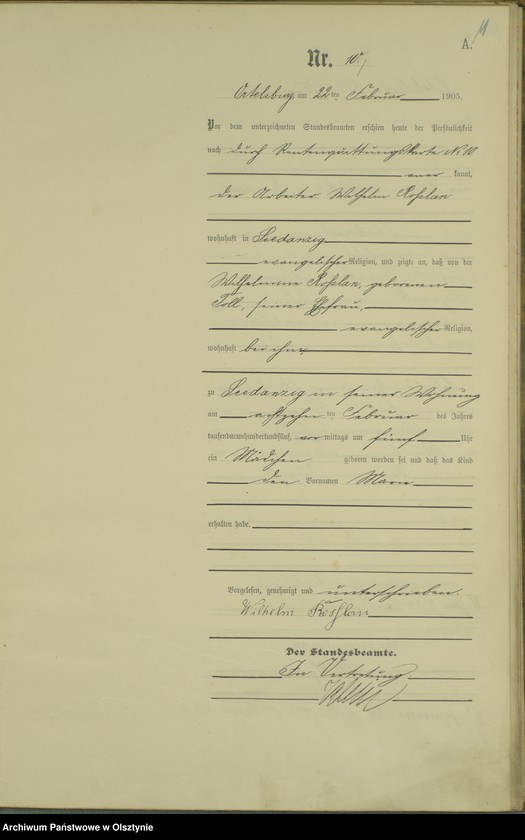 A.
Nr. 10.
Ortelsburg, am 22ten Februar 1905.
Vor dem unterzeichneten Standesbeamten erschien heute der Persönlichkeit
nach durch Rentenquittungskarte No 10
kannt,
der Arbeiter Wilhelm Koslan
wohnhaft in Seedanzig
evangelischer Religion, und zeigte an, daß von der
Wilhelmine Koslan, geborenen
Toll, seiner Ehefrau,
evangelischer Religion,
wohnhaft bei ihm
zu Seedanzig in seiner Wohnung
am achtzehnten Februar des Jahres
tausendneunhundertundfünf, vormittags um fünf Uhr
ein Mädchen geboren worden sei und daß das Kind
den Vornamen
erhalten habe.
Vorgelesen, genehmigt und unterschrieben.
Wilhelm Kosslan
Der Standesbeamte.
In Vertretung
Archiwum Państwowe w Olsztynie